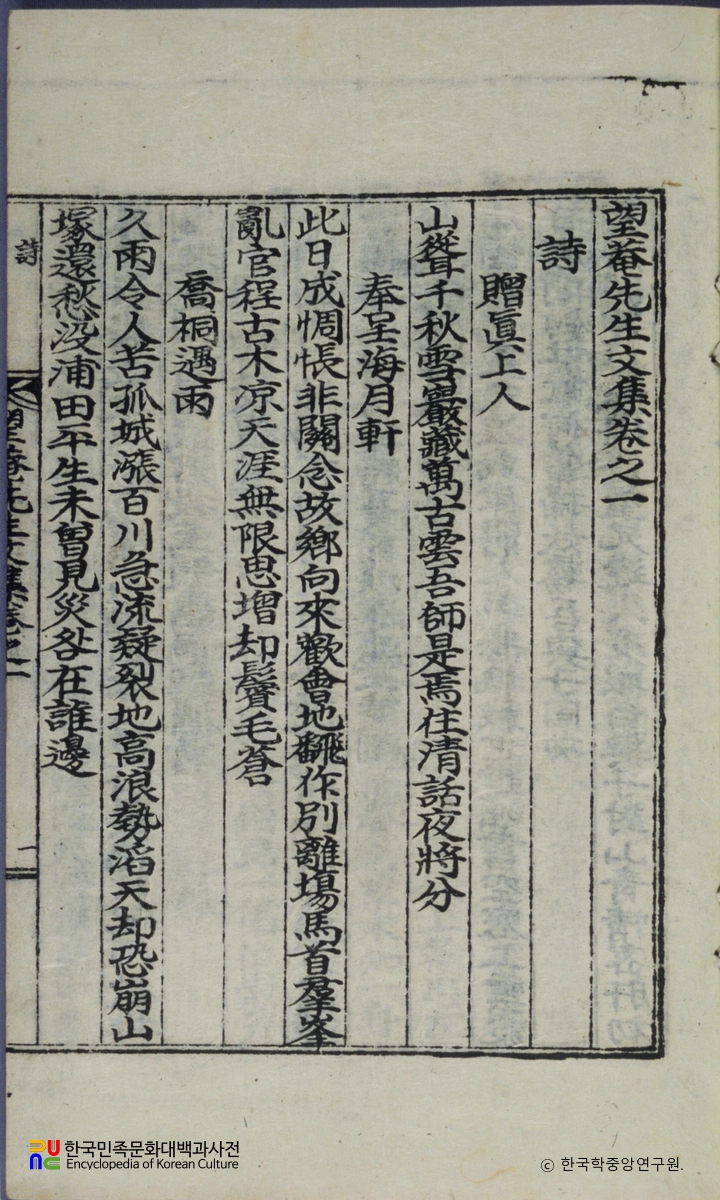 望菴先生文集卷之一
詩
贈眞上人
山聳千秋雪巖藏萬古雲吾師是焉住淸話夜將分
奉呈海月軒
此日成惆悵非關念故鄕向來歡會地飜作別離塲馬首羣峯
亂官程古木凉天涯無限思增却鬢毛蒼
喬桐遇雨
久雨令人苦孤城漲百川急流疑裂地高浪勢滔天却恐崩山
塚還愁没浦田平生未曾見災咎在誰邊
詩
望菴先生文集卷之一
一
한국민족문화대백과사전
Encyclopedia of Korean Culture
© 한국학중앙연구원.